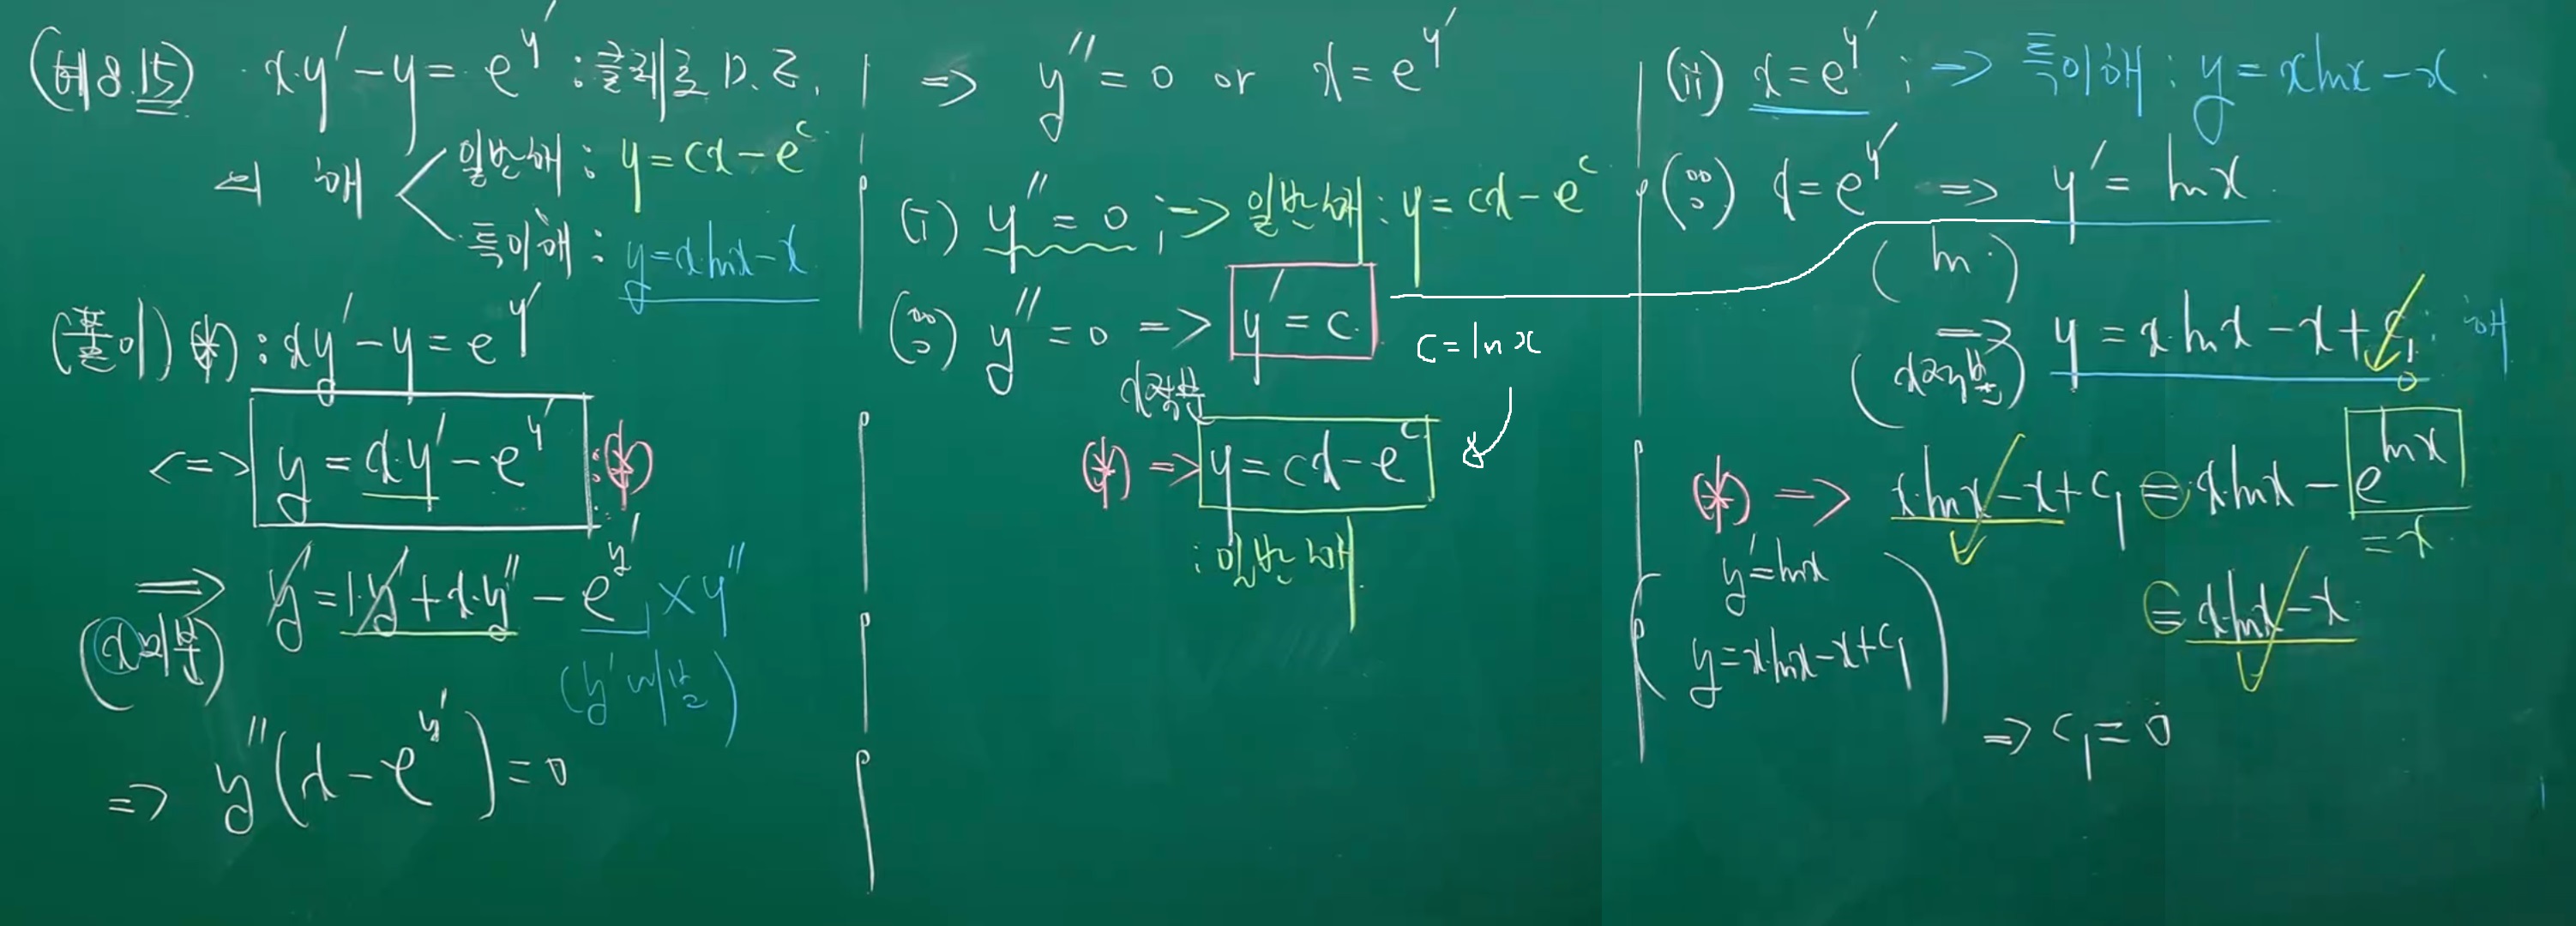 (예8.15) x·y′ − y = e^{y′} : 클레로 D.E.
의 해
일반해 : y = cx − e^c
특이해 : y = x·lnx − x
(풀이) (*) : xy′ − y = e^{y′}
<=> y = x·y′ − e^{y′} : (*)
=> y′ = 1·y′ + x·y″ − e^{y′} × y″
(x미분)
(y′미분)
=> y″(x − e^{y′}) = 0
=> y″ = 0 or x = e^{y′}
(i) y″ = 0 ; -> 일반해 : y = cx − e^c
(∵) y″ = 0 => y′ = c
c = ln x
x적분
(*) => y = cx − e^c
: 일반해
(ii) x = e^{y′} ; => 특이해 : y = xlnx − x.
(∵) x = e^{y′} => y′ = lnx.
(ln·)
=> y = x·lnx − x + c₁ : 해
(x적분)
0
(*) => x·lnx − x + c₁ = x·lnx − e^{lnx}
= x
y′ = lnx
= x·lnx − x
y = x·lnx − x + c₁
=> c₁ = 0